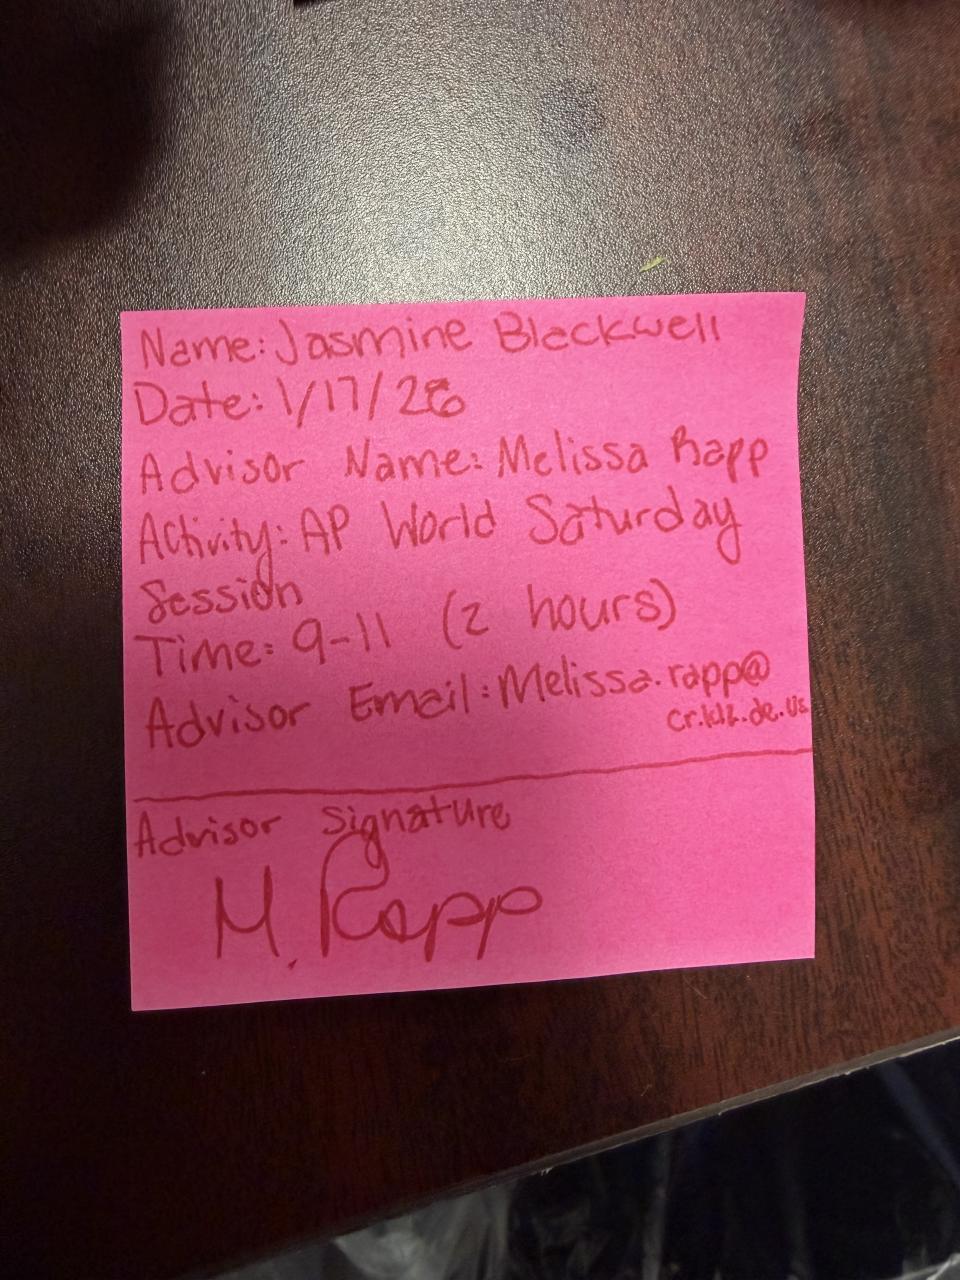 Name: Jasmine Blackwell
Date: 1/17/26
Advisor Name: Melissa Rapp
Activity: AP World Saturday
Session
Time: 9-11 (2 hours)
Advisor Email: Melissa.rapp@
cr.k12.de.us
Advisor Signature
M. Rapp